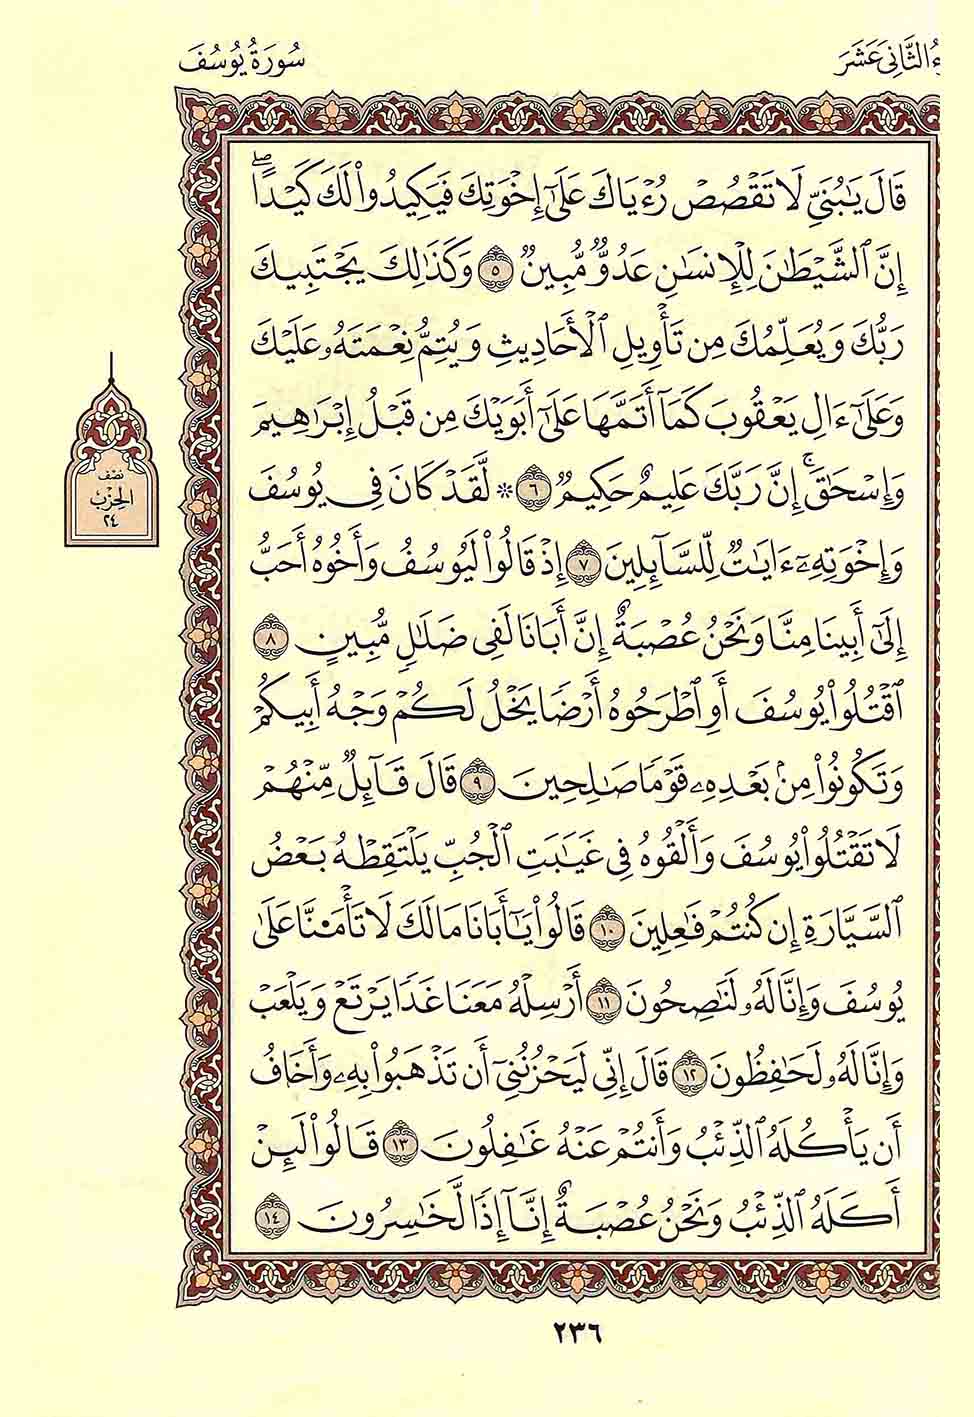 ءُ الثَّانِي عَشَرَ
سُورَةُ يُوسُفَ
قَالَ يَٰبُنَيَّ لَا تَقۡصُصۡ رُءۡيَاكَ عَلَىٰٓ إِخۡوَتِكَ فَيَكِيدُواْ لَكَ كَيۡدًاۖ
إِنَّ ٱلشَّيۡطَٰنَ لِلۡإِنسَٰنِ عَدُوّٞ مُّبِينٞ ٥ وَكَذَٰلِكَ يَجۡتَبِيكَ
رَبُّكَ وَيُعَلِّمُكَ مِن تَأۡوِيلِ ٱلۡأَحَادِيثِ وَيُتِمُّ نِعۡمَتَهُۥ عَلَيۡكَ
وَعَلَىٰٓ ءَالِ يَعۡقُوبَ كَمَآ أَتَمَّهَا عَلَىٰٓ أَبَوَيۡكَ مِن قَبۡلُ إِبۡرَٰهِيمَ
وَإِسۡحَٰقَۚ إِنَّ رَبَّكَ عَلِيمٌ حَكِيمٞ ٦ * لَّقَدۡ كَانَ فِي يُوسُفَ
وَإِخۡوَتِهِۦٓ ءَايَٰتٞ لِّلسَّآئِلِينَ ٧ إِذۡ قَالُواْ لَيُوسُفُ وَأَخُوهُ أَحَبُّ
إِلَىٰٓ أَبِينَا مِنَّا وَنَحۡنُ عُصۡبَةٌ إِنَّ أَبَانَا لَفِي ضَلَٰلٖ مُّبِينٍ ٨
ٱقۡتُلُواْ يُوسُفَ أَوِ ٱطۡرَحُوهُ أَرۡضٗا يَخۡلُ لَكُمۡ وَجۡهُ أَبِيكُمۡ
وَتَكُونُواْ مِنۢ بَعۡدِهِۦ قَوۡمٗا صَٰلِحِينَ ٩ قَالَ قَآئِلٞ مِّنۡهُمۡ
لَا تَقۡتُلُواْ يُوسُفَ وَأَلۡقُوهُ فِي غَيَٰبَتِ ٱلۡجُبِّ يَلۡتَقِطۡهُ بَعۡضُ
ٱلسَّيَّارَةِ إِن كُنتُمۡ فَٰعِلِينَ ١٠ قَالُواْ يَٰٓأَبَانَا مَالَكَ لَا تَأۡمَ۬نَّا عَلَىٰ
يُوسُفَ وَإِنَّا لَهُۥ لَنَٰصِحُونَ ١١ أَرۡسِلۡهُ مَعَنَا غَدٗا يَرۡتَعۡ وَيَلۡعَبۡ
وَإِنَّا لَهُۥ لَحَٰفِظُونَ ١٢ قَالَ إِنِّي لَيَحۡزُنُنِيٓ أَن تَذۡهَبُواْ بِهِۦ وَأَخَافُ
أَن يَأۡكُلَهُ ٱلذِّئۡبُ وَأَنتُمۡ عَنۡهُ غَٰفِلُونَ ١٣ قَالُواْ لَئِنۡ
أَكَلَهُ ٱلذِّئۡبُ وَنَحۡنُ عُصۡبَةٌ إِنَّآ إِذٗا لَّخَٰسِرُونَ ١٤
نصف
الحِزْب
٢٤
٢٣٦